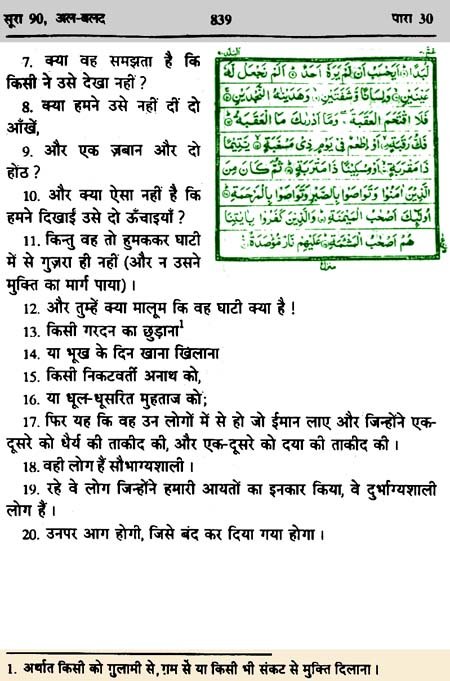 सूरा 90, अल-बलद 839 पारा 30
7. क्या वह समझता है कि
किसी ने उसे देखा नहीं ?
8. क्या हमने उसे नहीं दीं दो
आँखें,
9. और एक ज़बान और दो
होंठ ?
10. और क्या ऐसा नहीं है कि
हमने दिखाईं उसे दो ऊँचाइयाँ ?
11. किन्तु वह तो हुमककर घाटी
में से गुज़रा ही नहीं (और न उसने
मुक्ति का मार्ग पाया) ।
لُبَدًا ۞ اَيَحْسَبُ اَنْ لَّمْ يَرَهٗٓ اَحَدٌ ۞ اَلَمْ نَجْعَلْ لَّهٗ
عَيْنَيْنِ ۞ وَلِسَانًا وَّشَفَتَيْنِ ۞ وَهَدَيْنٰهُ النَّجْدَيْنِ ۞
فَلَا اقْتَحَمَ الْعَقَبَةَ ۞ وَمَآ اَدْرٰىكَ مَا الْعَقَبَةُ ۞
فَكُّ رَقَبَةٍ ۞ اَوْ اِطْعٰمٌ فِيْ يَوْمٍ ذِيْ مَسْغَبَةٍ ۞ يَّتِيْمًا
ذَا مَقْرَبَةٍ ۞ اَوْ مِسْكِيْنًا ذَا مَتْرَبَةٍ ۞ ثُمَّ كَانَ مِنَ
الَّذِيْنَ اٰمَنُوْا وَتَوَاصَوْا بِالصَّبْرِ وَتَوَاصَوْا بِالْمَرْحَمَةِ ۞
اُولٰٓئِكَ اَصْحٰبُ الْمَيْمَنَةِ ۞ وَالَّذِيْنَ كَفَرُوْا بِاٰيٰتِنَا
هُمْ اَصْحٰبُ الْمَشْـَٔمَةِ ۞ عَلَيْهِمْ نَارٌ مُّؤْصَدَةٌ ۞
12. और तुम्हें क्या मालूम कि वह घाटी क्या है !
13. किसी गरदन का छुड़ाना¹
14. या भूख के दिन खाना खिलाना
15. किसी निकटवर्ती अनाथ को,
16. या धूल-धूसरित मुहताज को;
17. फिर यह कि वह उन लोगों में से हो जो ईमान लाए और जिन्होंने एक-
दूसरे को धैर्य की ताकीद की, और एक-दूसरे को दया की ताकीद की ।
18. वही लोग हैं सौभाग्यशाली ।
19. रहे वे लोग जिन्होंने हमारी आयतों का इनकार किया, वे दुर्भाग्यशाली
लोग हैं ।
20. उनपर आग होगी, जिसे बंद कर दिया गया होगा ।
1. अर्थात किसी को ग़ुलामी से, ग़म से या किसी भी संकट से मुक्ति दिलाना ।